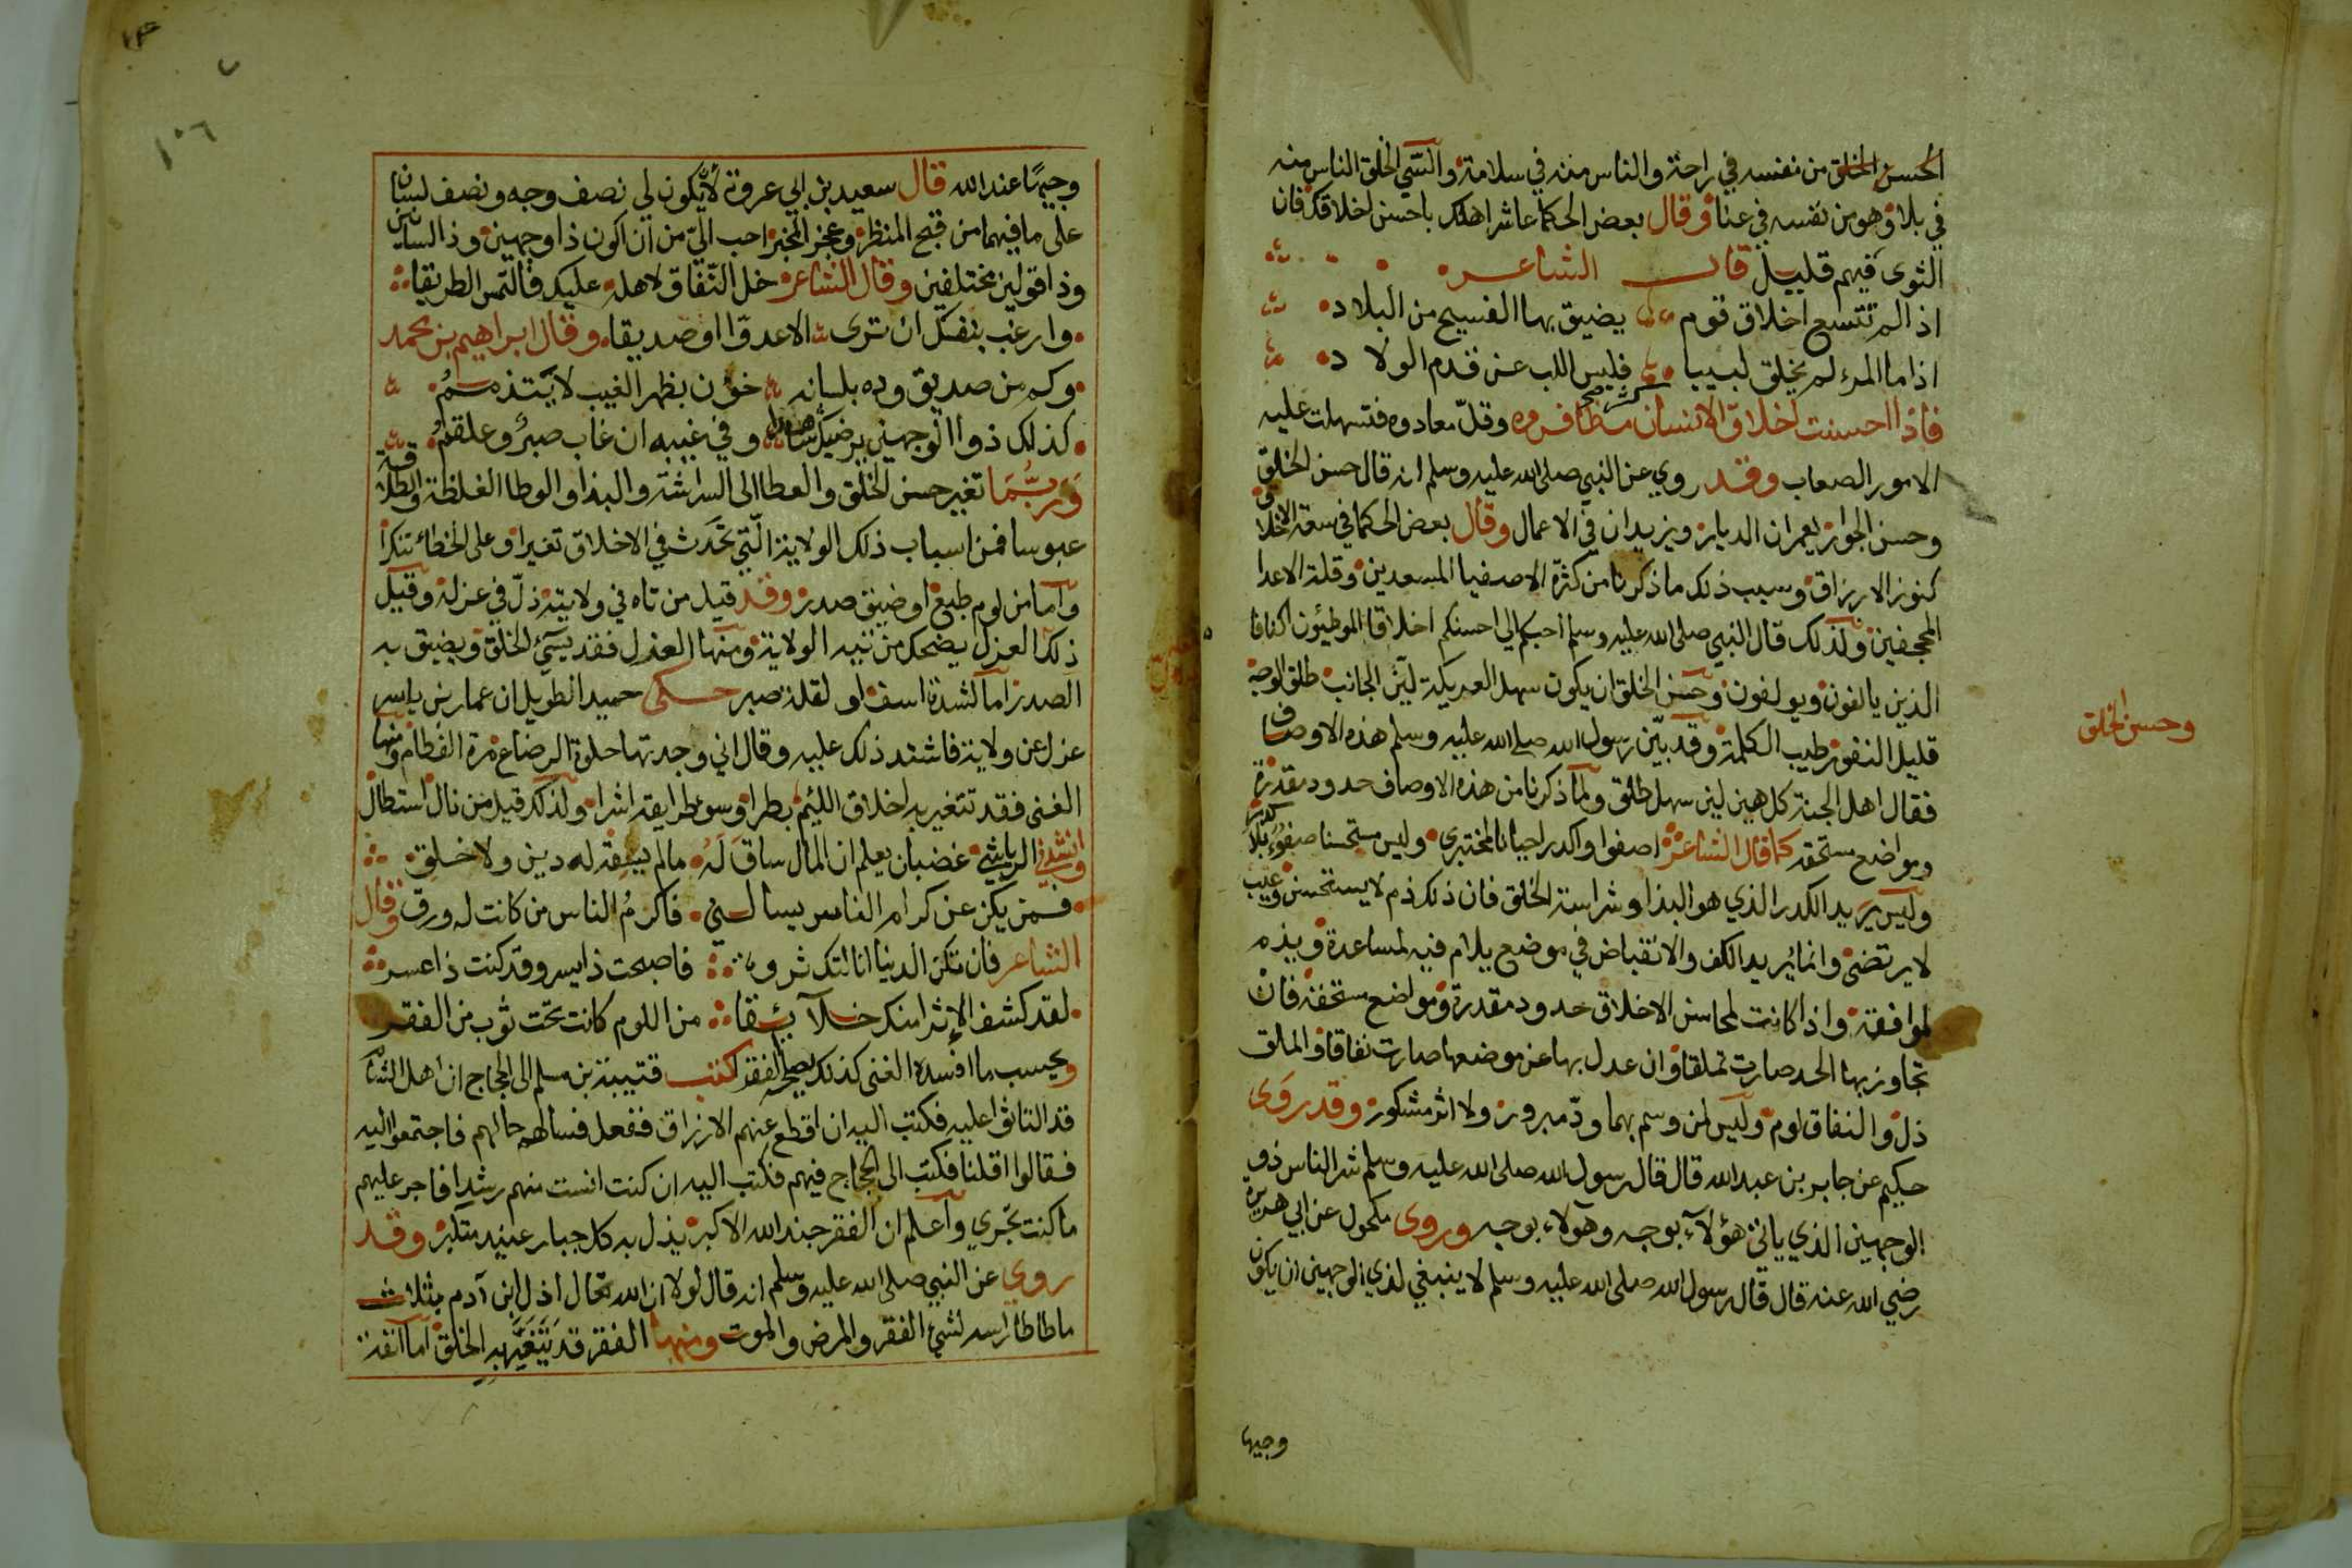 الحسن الخلق من نفسه في راحة والناس منه في سلامة والسّيئ الخلق الناس منه
في بلاء وهو من نفسه في عنا وقال بعض الحكما عاشر اهلك باحسن اخلاقك فان
الثوى فيهم قليل قال الشاعر
اذا لم تتسع اخلاق قوم يضيق بها الفسيح من البلاد
اذا ما المرء لم يخلق لبيبا فليس اللب عن قدم الولاد
فاذا احسنت اخلاق الانسان كثر مصافوه وقلّ معادوه فتسهلت عليه
الامور الصعاب وقد روي عن النبي صلى الله عليه وسلم انه قال حسن الخلق
وحسن الجوار يعمران الديار ويزيدان في الاعمال وقال بعض الحكما في سعة الاخلاق
كنوز الارزاق وسبب ذلك ما ذكرنا من كثرة الاصفيا المسعدين وقلة الاعدا
المجحفين ولذلك قال النبي صلى الله عليه وسلم احبكم الي احسنكم اخلاقا الموطئون اكنافا
الذين يالفون ويولفون وحسن الخلق ان يكون سهل العريكة ليّن الجانب طلق الوجه
وحسن الخلق
قليل النفور طيب الكلمة وقد بيّن رسول الله صلى الله عليه وسلم هذه الاوصاف
فقال اهل الجنة كل هين لين سهل طلق ولما ذكرنا من هذه الاوصاف حدود مقدرة
ومواضع مستحقه كما قال الشاعر اصفوا واكدر احيانا لمختبري وليس مستحسنا صفو بلا كدر
وليس يريد الكدر الذي هو البذا وشراسة الخلق فان ذلك ذم لا يستحسن وعيب
لا يرتضى وانما يُريد الكف والانقباض في موضع يلام فيه لمساعدة ويذم
لموافقة واذا كانت لمحاسن الاخلاق حدود مقدرة ومواضع مستحقة فان
تجاوز بها الحد صارت تملقا وان عدل بها عن موضعها صارت نفاقا والملق
ذل والنفاق لوم وليس لمن وسم بهما ودّ مبرور ولا اثر مشكور وقد رَوَى
حكيم عن جابر بن عبد الله قال قال رسول الله صلى الله عليه وسلم شر الناس ذو
الوجهين الذي ياتي هؤلاء بوجه وهولاء بوجه وروى مكحول عن ابي هريرة
رضي الله عنه قال قال رسول الله صلى الله عليه وسلم لا ينبغي لذي الوجهين ان يكون
وجيها
١٠٦
وجيهًا عند الله قال سعيد بن ابي عروة لأن يكون لي نصف وجه ونصف لسان
على ما فيهما من قبح المنظر وعجز المخبر احب اليّ من ان اكون ذا وجهين وذا لسانين
وذا قولين مختلفين وقال الشاعر خل النّفاق لاهله عليك فالتمس الطريقا
وارغب بنفسك ان ترى الا عدوّا او صديقا وقال ابراهيم بن محمد
وكم من صديق وده بلسانه خؤن بظهر الغيب لا يتذمم
كذلك ذوا الوجهين يرضيك شاهدا وفي غيبه ان غاب صبرٌ وعلقم
وَربُّمَا تغير حسن الخلق والعطا الى الشراسة والبذا والوطا الغلظة والطلاقة
عبوسا فمن اسباب ذلك الولاية الّتي تحدث في الاخلاق تغيرا وعلى الخطاء تنكرا
واما من لوم طبع او ضيق صدر وقد قيل من تاه في ولايته ذلّ في عزله وقيل
ذلك العزل يضحك من تيه الولاية ومنها العزل فقد يسيّء الخلق ويضيق به
الصدر اما لشدة اسف او لقلة صبر حكى حميد الطويل ان عمار بن ياسر
عزل عن ولاية فاشتد ذلك عليه وقال اني وجدتها حلوة الرضاع مرة الفطام ومنها
الغنى فقد تتغير به اخلاق اللئيم بطرا وسوء طرايقه اشرا ولذلك قيل من نال استطال
وانشدني الرياشي غضبان يعلم ان المال ساق لَهُ مالم يسقه له دين ولا خلق
فمن يكن عن كرام الناس يسالني فاكرمُ الناس من كانت له ورق وقال
الشاعر فان تكن الدنيا انالتك ثروة فاصبحت ذا يسر وقد كنت ذا عسر
لقد كشف الإثرا منك خلآئقا من اللوم كانت تحت ثوب من الفقر
وبحسب ما افسده الغنى كذلك يصلحه الفقر كتب قتيبة بن مسلم الى الحجاج ان اهل الشام
قد التاثوا عليه فكتب اليه ان اقطع عنهم الارزاق ففعل فسالهم حالهم فاجتمعوا اليه
فقالوا اقلنا فكتب الى الحجاج فيهم فكتب اليه ان كنت انست منهم رشدا فاجر عليهم
ما كنت تجري واعلم ان الفقر جند الله الاكبر يذل به كل جبار عنيد متكبر وقد
روي عن النبي صلى الله عليه وسلم انه قال لولا ان الله تعالى اذل ابن آدم بثلاث
ما طاطا راسه لشئ الفقر والمرض والموت ومنها الفقر قد يَتَغَيَّر به الخلق اما انفة